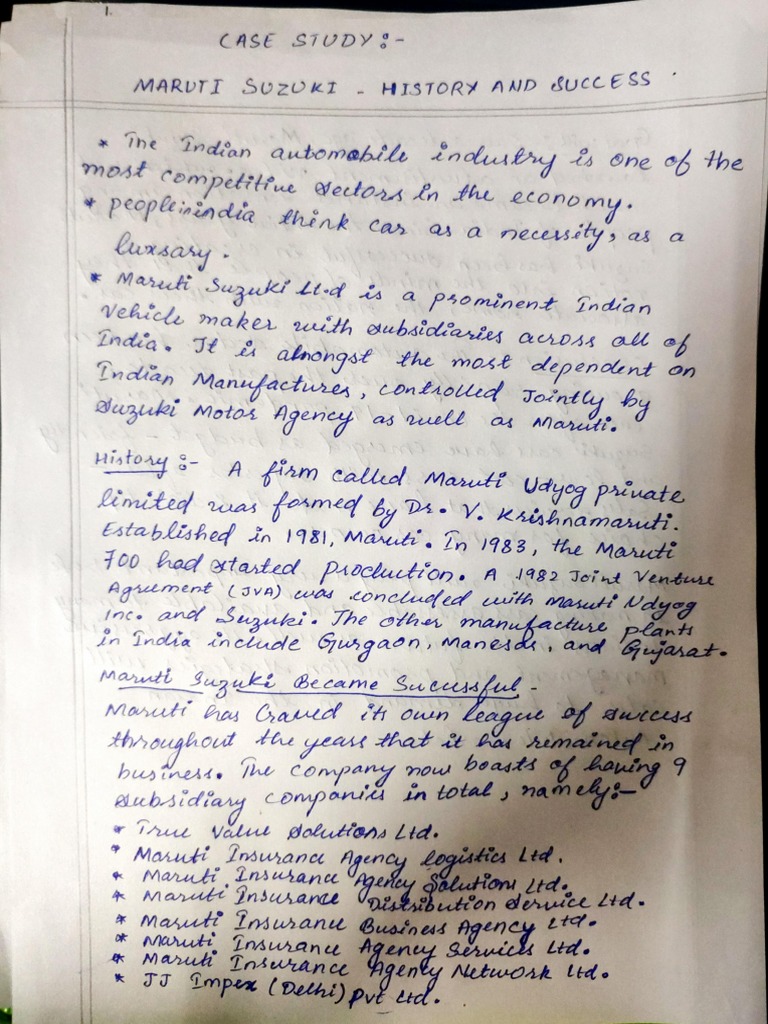 1.
CASE STUDY:-
MARUTI SUZUKI - HISTORY AND SUCCESS
* The Indian automobile industry is one of the
most competitive sectors in the economy.
* people in india think car as a necessity, as a
luxsary.
* Maruti Suzuki Lt.d is a prominent Indian
vehicle maker with subsidiaries across all of
India. It is alnongst the most dependent on
Indian Manufactures, controlled Jointly by
Suzuki Motor Agency as well as Maruti.
History :- A firm called Maruti Udyog private
limited was formed by Dr. V. Krishnamaruti.
Established in 1981, Maruti. In 1983, the Maruti
700 had started production. A 1982 Joint Venture
Agrument (JVA) was concluded with Maruti Udyog
Inc. and Suzuki. The other manufacture plants
in India include Gurgaon, Manesar, and Gujarat.
Maruti Suzuki Became Successful -
Maruti has Craved its own league of success
throughout the years that it has remained in
business. The company now boasts of having 9
subsidiary companies in total, namely:-
* True Value Solutions Ltd.
* Maruti Insurance Agency logistics Ltd.
* Maruti Insurance Agency Solutions Ltd.
* Maruti Insurance Distribution Service Ltd.
* Maruti Insurance Business Agency Ltd.
* Maruti Insurance Agency Services Ltd.
* Maruti Insurance Agency Network Ltd.
* JJ Impex (Delhi) Pvt Ltd.